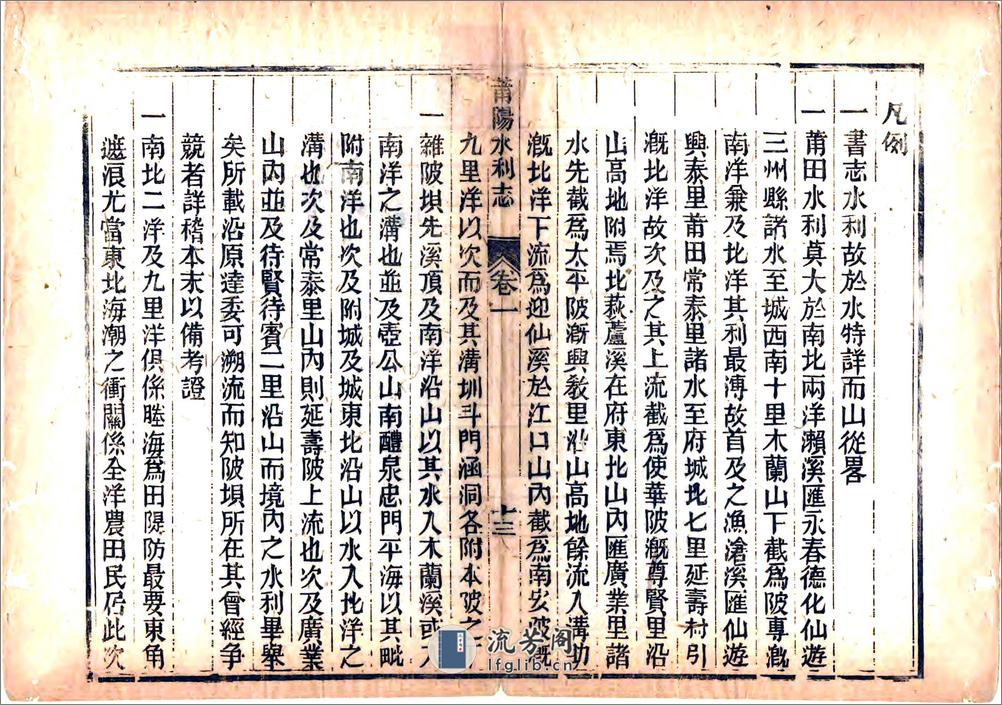 凡例
一書志水利故於水特詳而山從畧
一莆田水利莫大於南北兩洋瀨溪匯永春德化仙遊
三州縣諸水至城西南十里木蘭山下截爲陂專溉
南洋兼及北洋其利最溥故首及之漁滄溪匯仙遊
興泰里莆田常泰里諸水至府城北七里延壽村引
溉北洋故次及之其上流截爲使華陂溉尊賢里沿
山高地附焉北萩蘆溪在府東北山內匯廣業里諸
水先截爲太平陂溉興敎里沿山高地餘流入溝助
溉北洋下流爲迎仙溪於江口山內截爲南安陂溉
莆陽水利志
卷一
十三
九里洋以次而及其溝圳斗門涵洞各附本陂之
一雜陂垻先溪頂及南洋沿山以其水入木蘭溪或
南洋之溝也並及壺公山南醴泉忠門平海以其毗
附南洋也次及附城及城東北沿山以水入北洋之
溝也次及常泰里山內則延壽陂上流也次及廣業
山內並及待賢待賓二里沿山而境內之水利畢舉
矣所載沿原達委可溯流而知陂垻所在其曾經爭
競者詳稽本末以備考證
一南北二洋及九里洋俱係塍海爲田隄防最要東角
遮浪尤當東北海潮之衝關係全洋農田民居此次
流芳阁
lfglib.cn